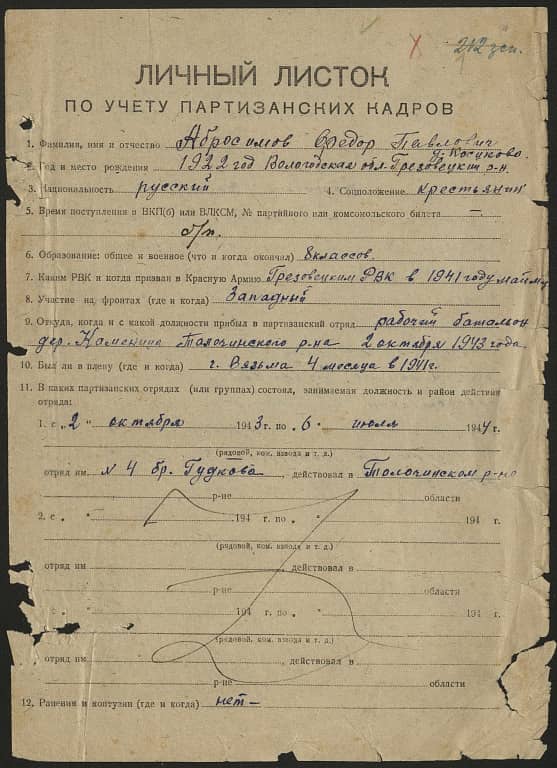 212 зсп.
ЛИЧНЫЙ ЛИСТОК
ПО УЧЕТУ ПАРТИЗАНСКИХ КАДРОВ
1. Фамилия, имя и отчество Абросимов Федор Павлович
д. Косиково
2. Год и место рождения 1922 год Вологодская обл. Грезовецкий р-н.
3. Национальность русский 4. Соцположение крестьянин
5. Время поступления в ВКП(б) или ВЛКСМ, № партийного или комсомольского билета —
б/п.
6. Образование: общее и военное (что и когда окончал) 8 классов.
7. Каким РВК и когда призван в Красную Армию Грезовецким РВК в 1941 году май м-ц
8. Участие на фронтах (где и когда) Западный
9. Откуда, когда и с какой должности прибыл в партизанский отряд рабочий батальон
дер. Каменица Толочинского р-на 2 октября 1943 года.
10. Был ли в плену (где и когда) г. Вязьма 4 месяца в 1941г.
11. В каких партизанских отрядах (или группах) состоял, занимаемая должность и район действия
отряда:
1. с „2" октября 1943 г. по „6" июля 1944 г.
(рядовой, ком. взвода и т. д.)
отряд им. N 4 бр. Гудкова, действовал в Толочинском р-не
р-не области
2. с „ " 194 г. по „ " 194 г.
(рядовой, ком. взвода и т. д.)
отряд им , действовал в
р-не области
с „ " 194 г. по „ " 194 г.
(рядовой, ком. взвода и т. д.)
отряд им , действовал в
р-не области
12. Ранения и контузии (где и когда) нет —